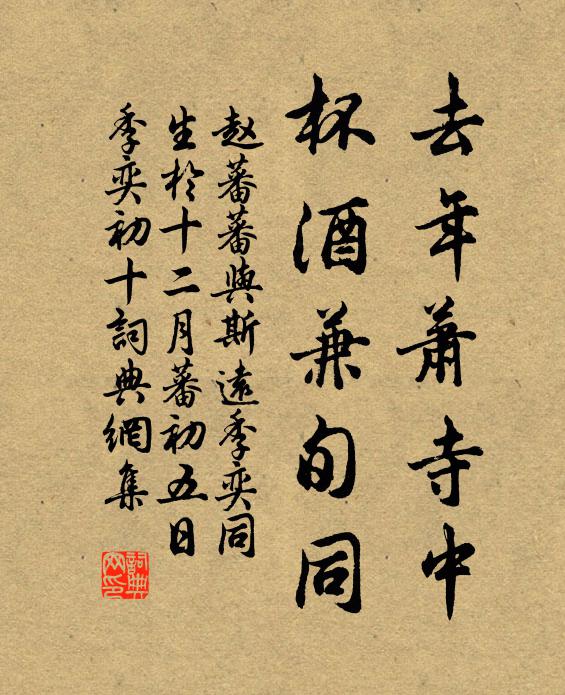 去年蕭寺中
杯酒兼旬同
赵蕃蕃與斯遠季奕同
生於十二月蕃初五日
季奕初十詞典網集
詞典网印